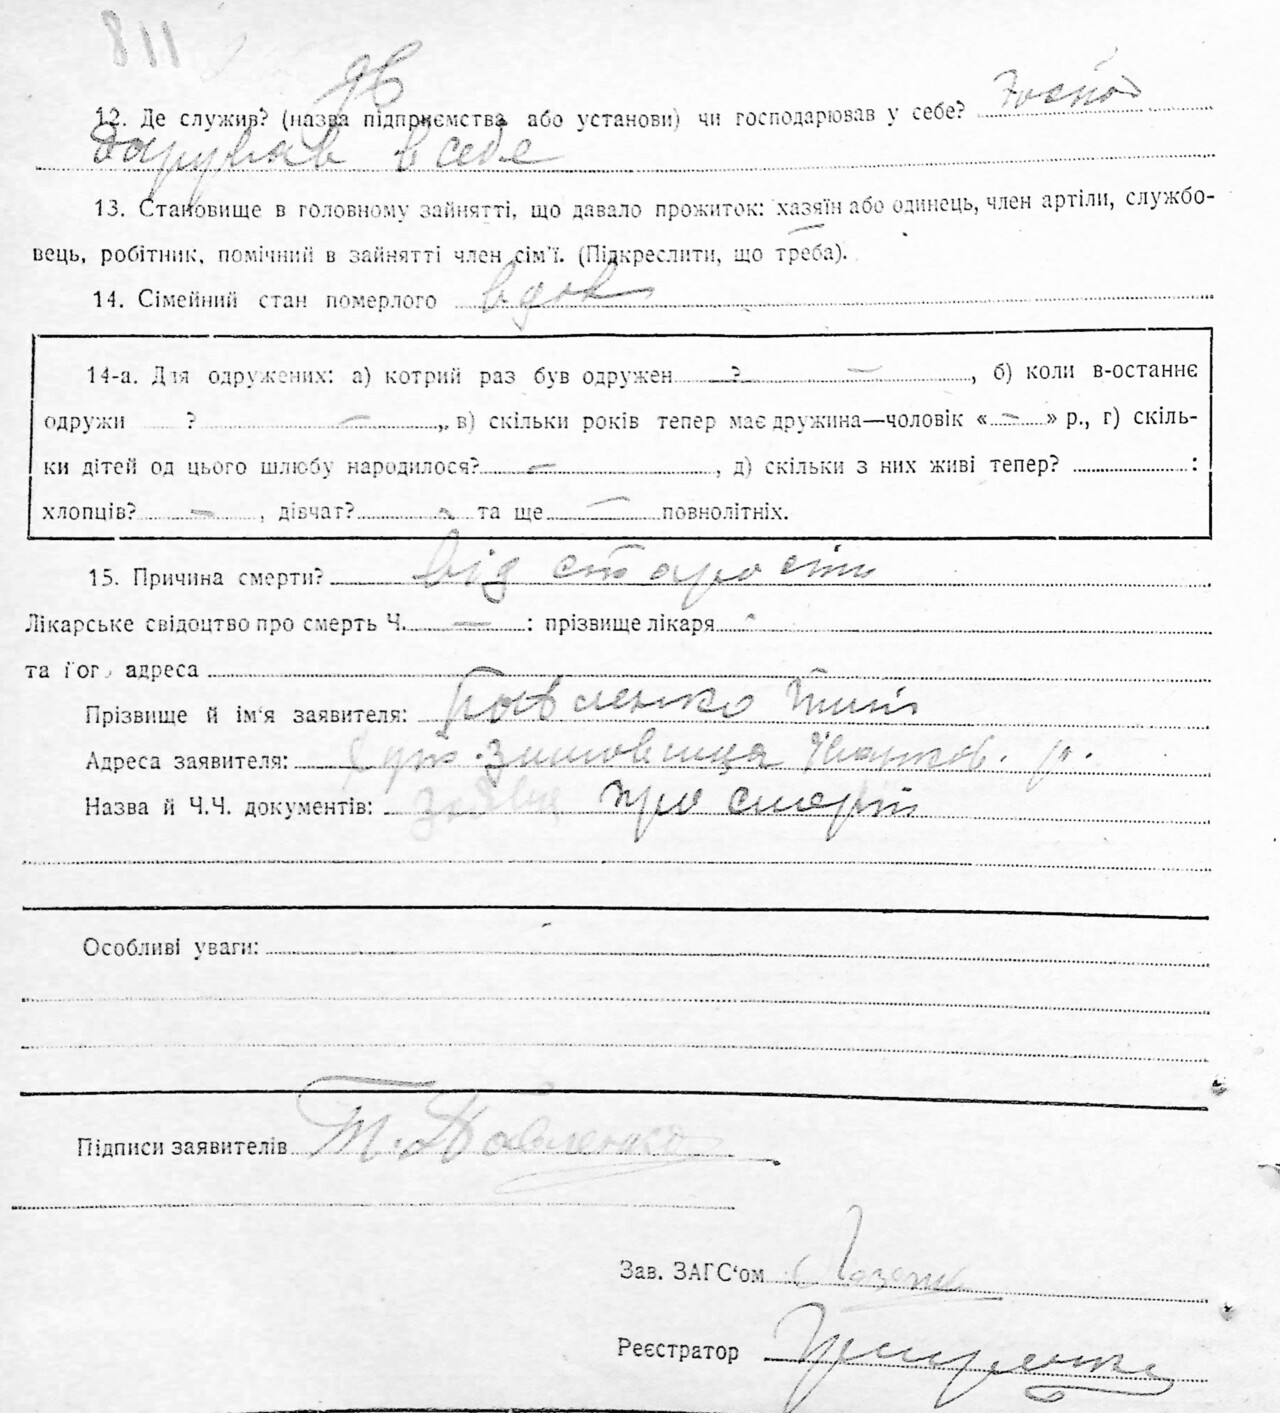 811
12. Де служив? (назва підприємства або установи) чи господарював у себе? Госпо
дарував в себе
13. Становище в головному зайнятті, що давало прожиток: хазяїн або одинець, член артіли, службо-
вець, робітник, помічний в зайнятті член сім'ї. (Підкреслити, що треба).
14. Сімейний стан померлого вдов
14-а. Для одружених: а) котрий раз був одружен ? —, б) коли в-останнє
одружи ? — „ в) скільки років тепер має дружина—чоловік « — » р., г) скіль-
ки дітей од цього шлюбу народилося? — , д) скільки з них живі тепер? :
хлопців? — , дівчат? — та ще — повнолітніх.
15. Причина смерти? від старости
Лікарське свідоцтво про смерть Ч. — : прізвище лікаря
та його адреса
Прізвище й ім'я заявителя: Павленко
Адреса заявителя: Зимовища р.
Назва й Ч.Ч. документів: заява про смерть
Особливі уваги:
Підписи заявителів Т. Павленко
Зав. ЗАГС'ом
Реєстратор